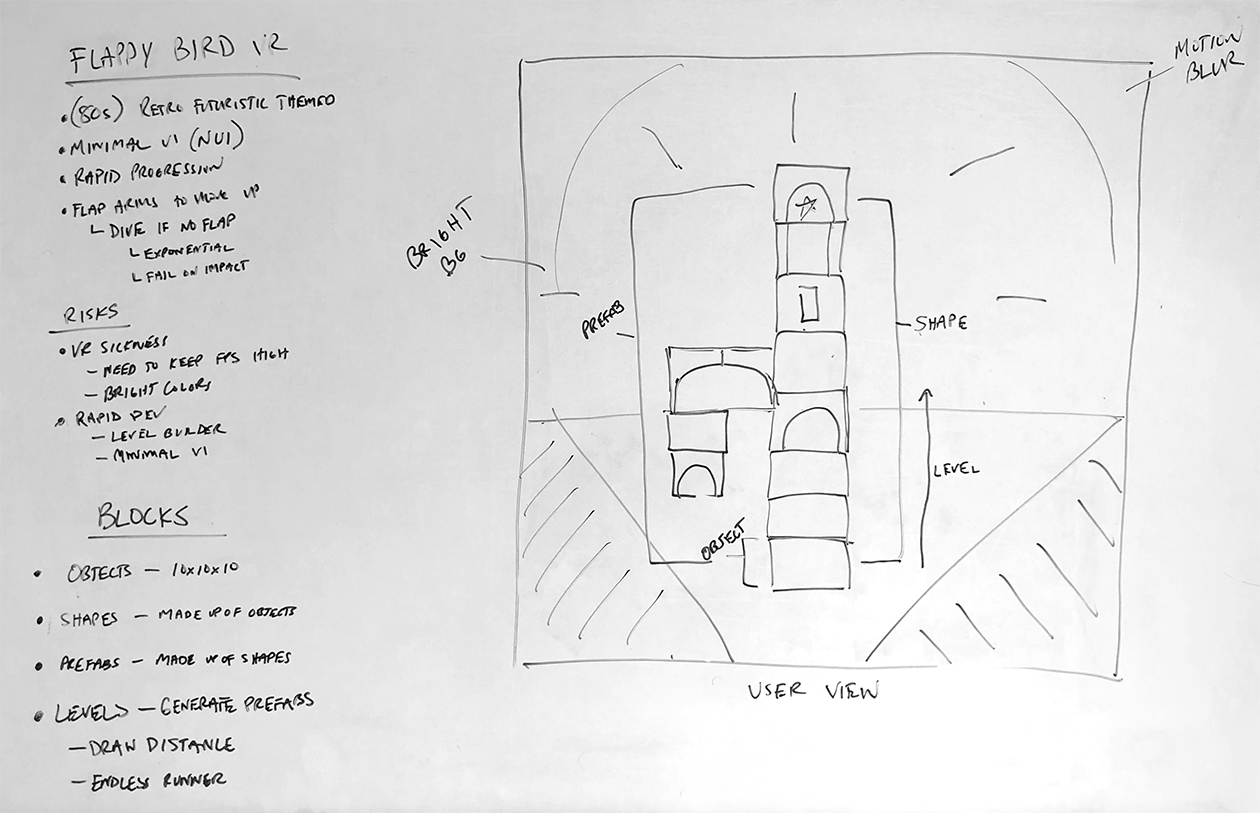 FLAPPY BIRD VR
• (80s) RETRO FUTURISTIC THEMED
• MINIMAL UI (NUI)
• RAPID PROGRESSION
• FLAP ARMS TO MOVE UP
└ DIVE IF NO FLAP
└ EXPONENTIAL
└ FAIL ON IMPACT
RISKS
• VR SICKNESS
– NEED TO KEEP FPS HIGH
– BRIGHT COLORS
• RAPID DEV
– LEVEL BUILDER
– MINIMAL UI
BLOCKS
• OBJECTS – 10x10x10
• SHAPES – MADE UP OF OBJECTS
• PREFABS – MADE UP OF SHAPES
• LEVELS – GENERATE PREFABS
– DRAW DISTANCE
– ENDLESS RUNNER
MOTION
BLUR
BRIGHT
BG
PREFAB
SHAPE
LEVEL
OBJECT
USER VIEW